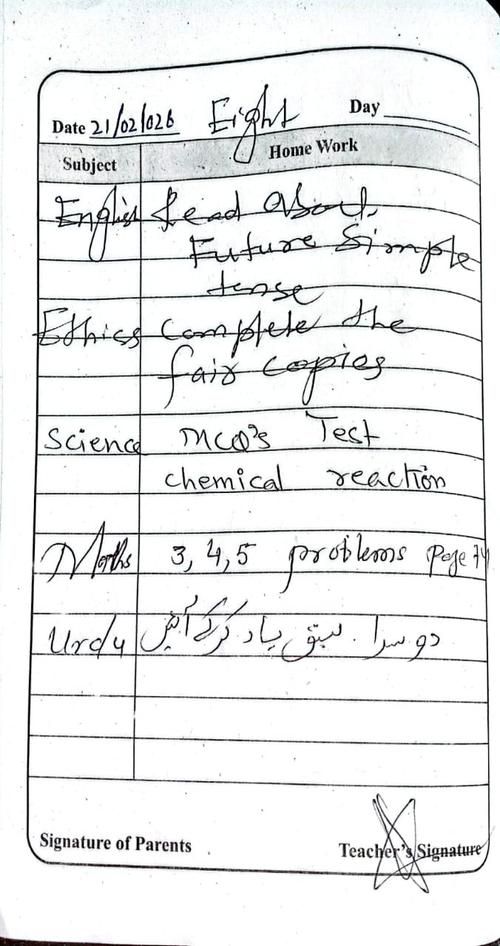 Date 21/02/026 Eight Day
Subject Home Work
English Read About
Future Simple
tense
Ethics Complete the
fair copies
Science MCQ's Test
chemical reaction
Maths 3, 4, 5 problems Page 74
Urdu دوسرا سبق یاد کرکے آئیں
Signature of Parents Teacher's Signature